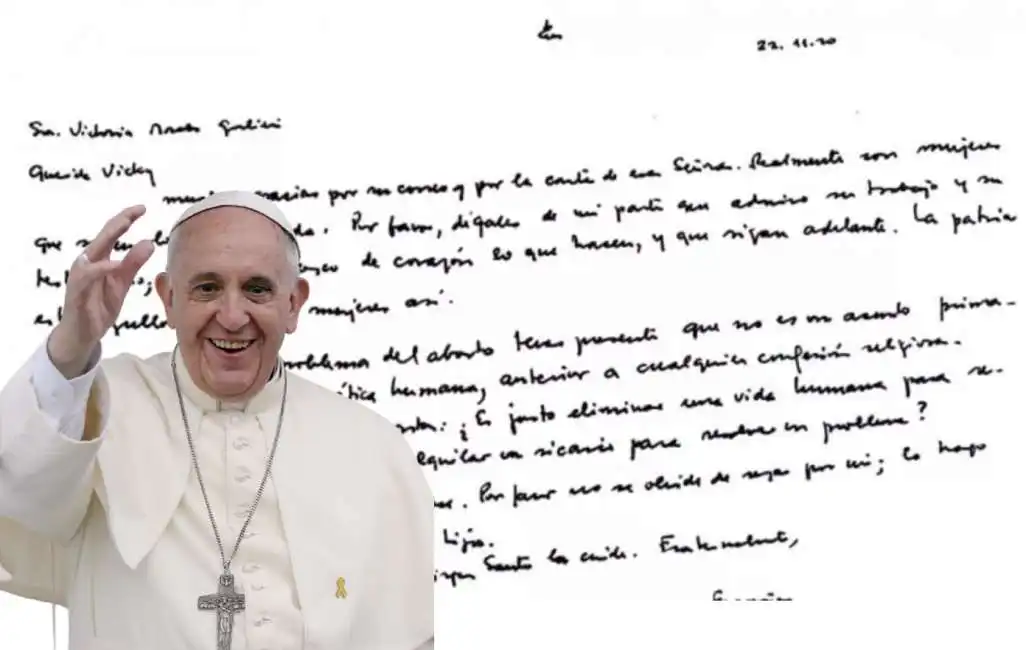 22.11.20
Sra. Victoria Morales
Querida Vicky
gracias por su correo y por la carta de esa Señora. Realmente son mujeres
que Por favor, dígales de mi parte que admiro su trabajo y su
de corazón lo que hacen, y que sigan adelante. La patria
mujeres así.
problema del aborto tener presente que no es un asunto prima-
ética humana, anterior a cualquier confesión religiosa.
¿Es justo eliminar una vida humana para re-
alquilar un sicario para resolver un problema?
Por favor no se olvide de rezar por mí; lo hago
hijos.
Virgen Santa las cuide. Fraternalmente,